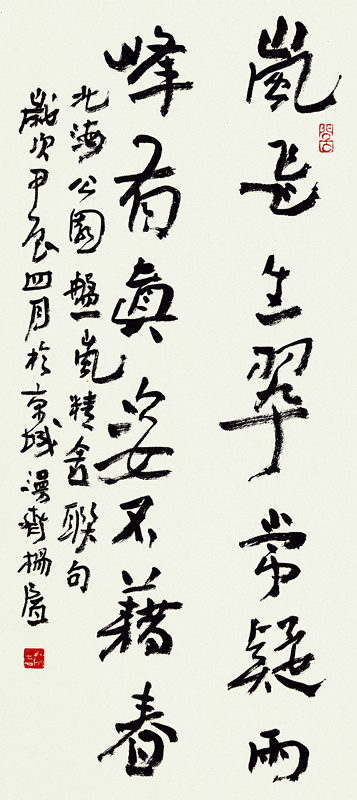 嵐生翠常疑雨
峰有眞姿不藉春
北海公園盤嵐精舍聯句
歲次甲辰四月於京城漫齋楊